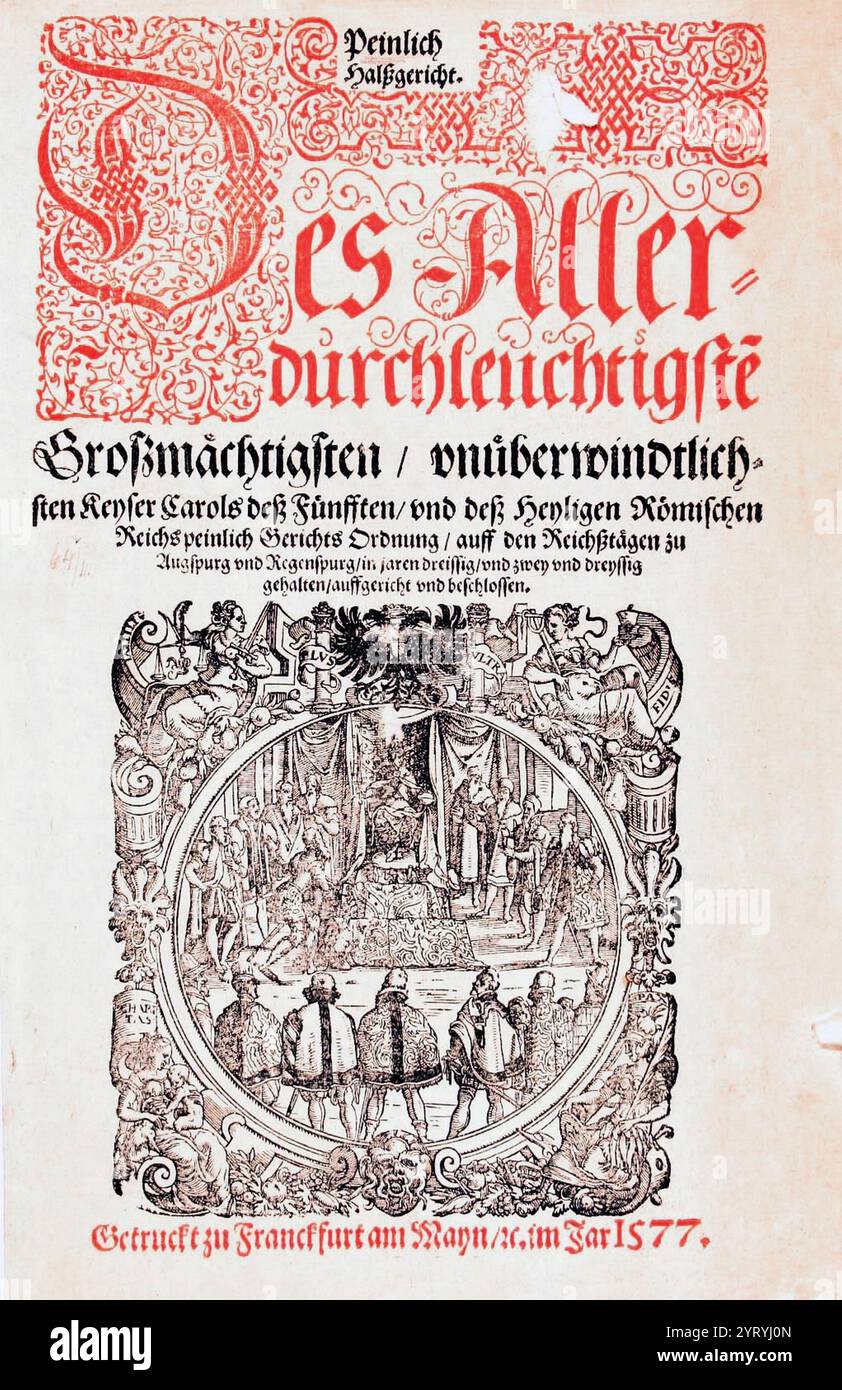 Peinlich
Halßgericht.
Des Aller-
durchleuchtigstē
Großmåchtigsten / vnůberwindtlich-
sten Keyser Carols deß Fünfften / vnd deß Heyligen Römischen
Reichs peinlich Gerichts Ordnung / auff den Reichßtägen zu
Augspurg vnd Regenspurg / in jaren dreissig / vnd zwey vnd dreyssig
gehalten / auffgericht vnd beschlossen.
PLVS
VLTR
FIDE
CHARI
TAS
Getruckt zu Franckfurt am Mayn / ꝛc. im Jar 1577.
alamy
alamy
Image ID: 2YRYJ0N
www.alamy.com